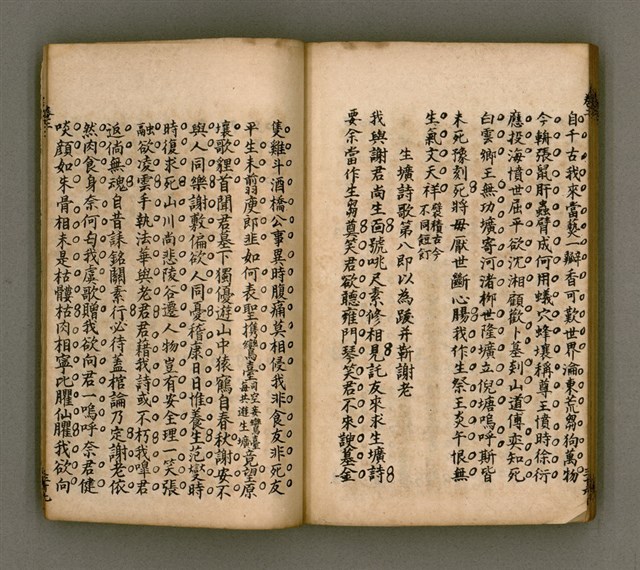 自千古我來當爇一瓣香可歎世界淪東荒芻狗萬物
今輧張鼠肝蟲臂成何用蟻穴蜂壤稱尊王憤時徐衍
應投海憤世屈平欲沈湘顧歡卜墓刻山道傅奕知死
白雲鄉王無功壙寄河渚柳世隆壙立倪塘嗚呼斯皆
未死豫刻死將毋厭世斷心腸我作生祭王炎午恨無
生氣文天祥 襞積古今不同餖飣
生壙詩歌第八即以為跋并靳謝老
我與謝君尚生面號咷尺素修相見託友來求生壙詩
要余當作生芻奠笑君欲聽雍門琴笑君不來諛墓金
隻雞斗酒橋公事異時腹痛莫相侵我非食友非死友
平生未翦庾郎韭如何表聖攜鸞臺 司空妾鸞臺每共遊生壙 竟望原
壤歌貍首聞君墓下獨優遊山中猿鶴自春秋謝安不
與人同樂謝敷偏欲人同憂稽康日日惟養生范爕時
時復求死山川尚悲陵谷遷人物豈有安全理一笑張
融欲凌雲手執法華與老君君藉我詩或不朽我嘆君
返倘無魂自昔誄銘關素行必待蓋棺論乃定謝老依
然肉食身奈何匄我虞歌贈我欲向君一嗚呼奈君健
啖顏如朱骨相未是枯髏枯肉相寧比臞仙臞我欲向